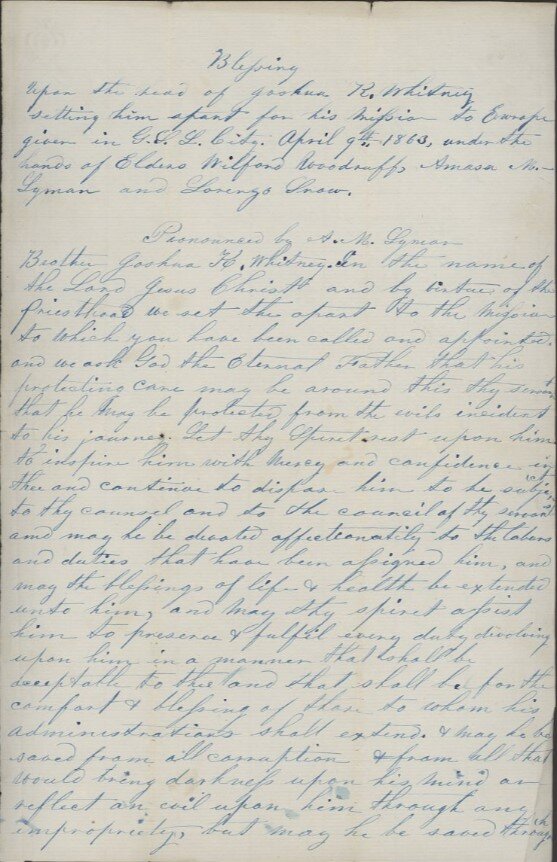 Blessing
Upon the head of Joshua K. Whitney
setting him apart for his Mission to Europe
given in G. S. L. City. April 9th 1863, under the
hands of Elders Wilford Woodruff, Amasa M.
Lyman and Lorenzo Snow.
Pronounced by A. M. Lyman
Brother Joshua K. Whitney. In the name of
the Lord Jesus Christ and by virtue of the
Priesthood we set the apart to the Mission
to which you have been called and appointed.
and we ask God the Eternal Father that his
protecting care may be around this thy servant
that he may be protected from the evils incident
to his journey. Let thy Spirit rest upon him
to inspire him with Mercy and confidence in
thee and continue to dispose him to be subject
to thy counsel and to the council of thy servants
and may he be devoted affectionatily to the labors
and duties that have been assigned him, and
may the blessings of life & health be extended
unto him, and may thy spiret assist
him to preserve & fulfil every duty devolving
upon him in a manner that shall be
acceptable to thee and that shall be for the
comfort & blessing of those to whom his
administrations shall extend. & may he be
saved from all corruption & from all that
would bring darkness upon his mind or
reflect an evil upon him through any
impropriety, but may he be saved through